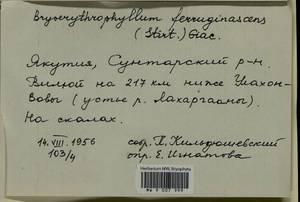 Bryoerythrophyllum ferruginascens
(Stirt.) Giac.
Якутия, Сунтарский р-н.
Вилюй на 217 км ниже
(устье р.
На скалах.
14.VIII.1956
103/4
собр. Кильдюшевский
опр. Е. Игнатова
Herbarium MW, Bryophyta